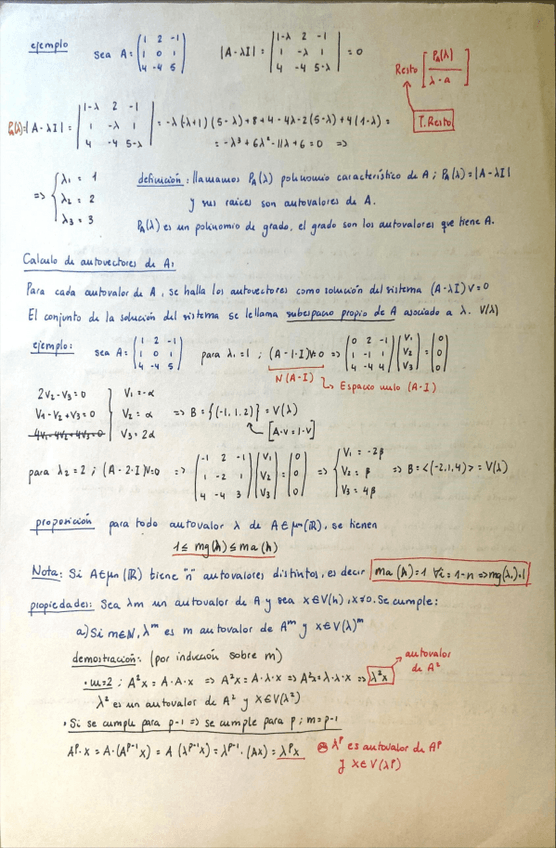 ejemplo sea A = (1 2 -1; 1 0 1; 4 -4 5) |A-λI| = |1-λ 2 -1; 1 -λ 1; 4 -4 5-λ| = 0
Resto [P_A(λ) / λ-a]
T. Resto
P_A(λ)=|A-λI| = |1-λ 2 -1; 1 -λ 1; 4 -4 5-λ| = -λ(-λ+1)(5-λ)+8+4-4λ-2(5-λ)+4(1-λ) =
= -λ³+6λ²-11λ+6=0 ⇒
⇒ { λ₁ = 1 λ₂ = 2 λ₃ = 3
definición: llamamos P_A(λ) polinomio característico de A; P_A(λ)=|A-λI|
y sus raíces son autovalores de A.
P_A(λ) es un polinomio de grado, el grado son los autovalores que tiene A.
Calculo de autovectores de A:
Para cada autovalor de A, se halla los autovectores como solución del sistema (A-λI)V=0
El conjunto de la solución del sistema se le llama subespacio propio de A asociado a λ. V(λ)
ejemplo: sea A = (1 2 -1; 1 0 1; 4 -4 5) para λ₁=1; (A-1·I)V=0 ⇒ (0 2 -1; 1 -1 1; 4 -4 4)(V₁; V₂; V₃) = (0; 0; 0)
N(A-I) ↳ Espacio nulo (A-I)
2V₂-V₃=0 V₁=-α
V₁-V₂+V₃=0 V₂=α ⇒ B={(-1,1,2)}=V(λ)
4V₁-4V₂+4V₃=0 V₃=2α [A·v=1·v]
para λ₂=2; (A-2·I)V=0 ⇒ (-1 2 -1; 1 -2 1; 4 -4 3)(V₁; V₂; V₃) = (0; 0; 0) ⇒ { V₁=-2β V₂=β V₃=4β ⇒ B=<(-2,1,4)>=V(λ)
proposición para todo autovalor λ de A∈μn(ℝ), se tienen
1≤ mg(λ) ≤ ma(λ)
Nota: Si A∈μn(ℝ) tiene "n" autovalores distintos, es decir ma(λ)=1 ∀i=1-n ⇒ mg(λᵢ)=1
propiedades: Sea λm un autovalor de A y sea x∈V(λ), x≠0. Se cumple:
a) Si m∈N, λᵐ es m autovalor de Aᵐ y x∈V(λ)ᵐ
demostración: (por inducción sobre m)
autovalor de A²
· m=2; A²x = A·A·x ⇒ A²x = A·λ·x ⇒ A²x=λ·λ·x ⇒ λ²x
λ² es un autovalor de A² y x∈V(λ²)
· Si se cumple para p-1 ⇒ se cumple para p; m=p-1
Aᵖ·x = A·(Aᵖ⁻¹x) = A(λᵖ⁻¹x) = λᵖ⁻¹·(Ax) = λᵖx λᵖ es autovalor de Aᵖ
y x∈V(λᵖ)